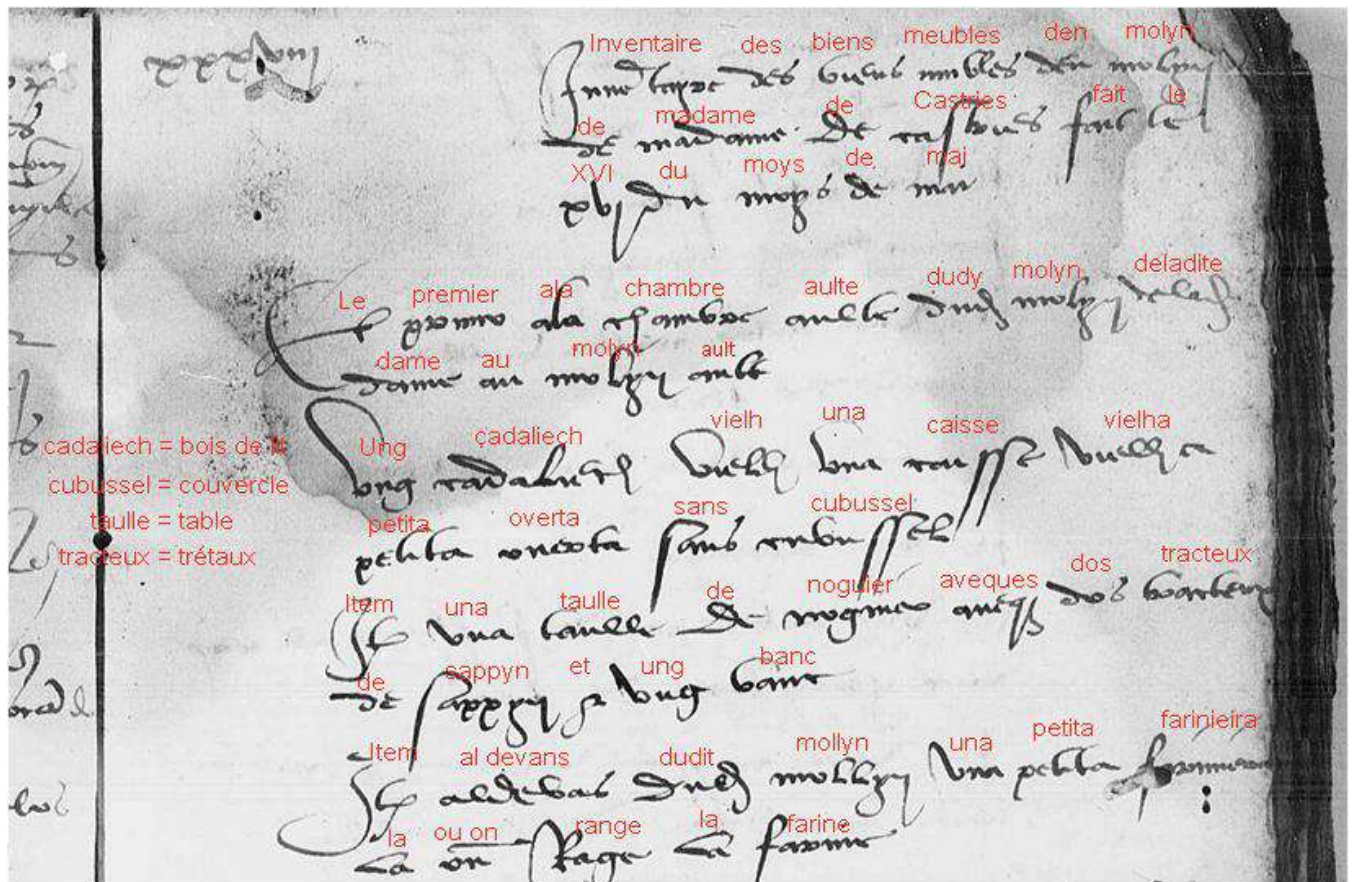 Inventaire des biens meubles den molyn
de madame de Castries fait le
XVI du moys de maj
Le premier ala chambre aulte dudy molyn deladite
dame au molyn ault
Ung cadaliech vielh una caisse vielha
petita overta sans cubussel
Item una taulle de noguier aveques dos tracteux
de sappyn et ung banc
Item al devans dudit mollyn una petita farinieira
la ou on range la farine
cadaliech = bois de lit
cubussel = couvercle
taulle = table
tracteux = trétaux